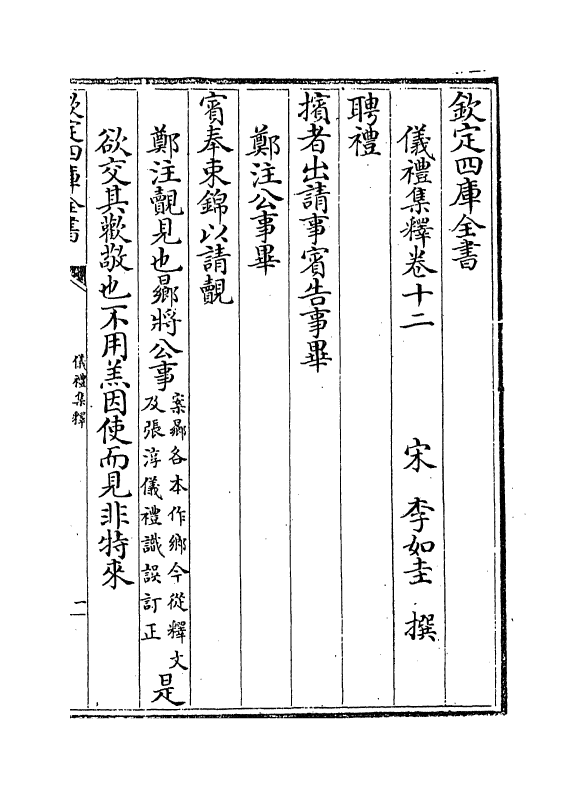 欽定四庫全書
儀禮集釋卷十二 宋 李如圭 撰
聘禮
擯者出請事賓告事畢
鄭注公事畢
賓奉束錦以請覿
鄭注覿見也曏將公事案曏各本作鄉今從釋文及張淳儀禮識誤訂正是
欲交其歡敬也不用羔因使而見非特來
欽定四庫全書
儀禮集釋
一